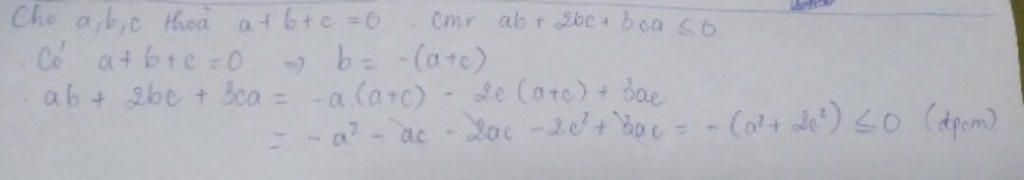 Cho a,b,c thoả a+b+c=0. cmr ab+2bc+3ca≤0
. Có a+b+c=0 => b= -(a+c)
. ab+ 2bc+3ca = -a.(a+c) - 2c(a+c)+3ac
= -a² - ac - 2ac -2c²+3ac = -(a²+2c²) ≤0 (đpcm)